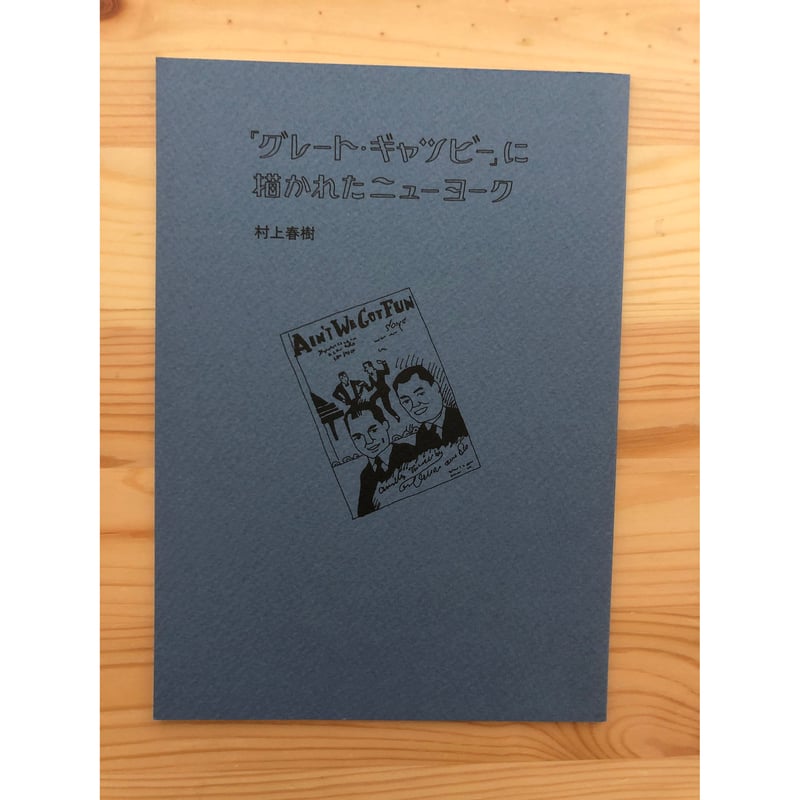 「グレート・ギャツビー」に
描かれたニューヨーク
村上春樹
AIN'T WE GOT FUN